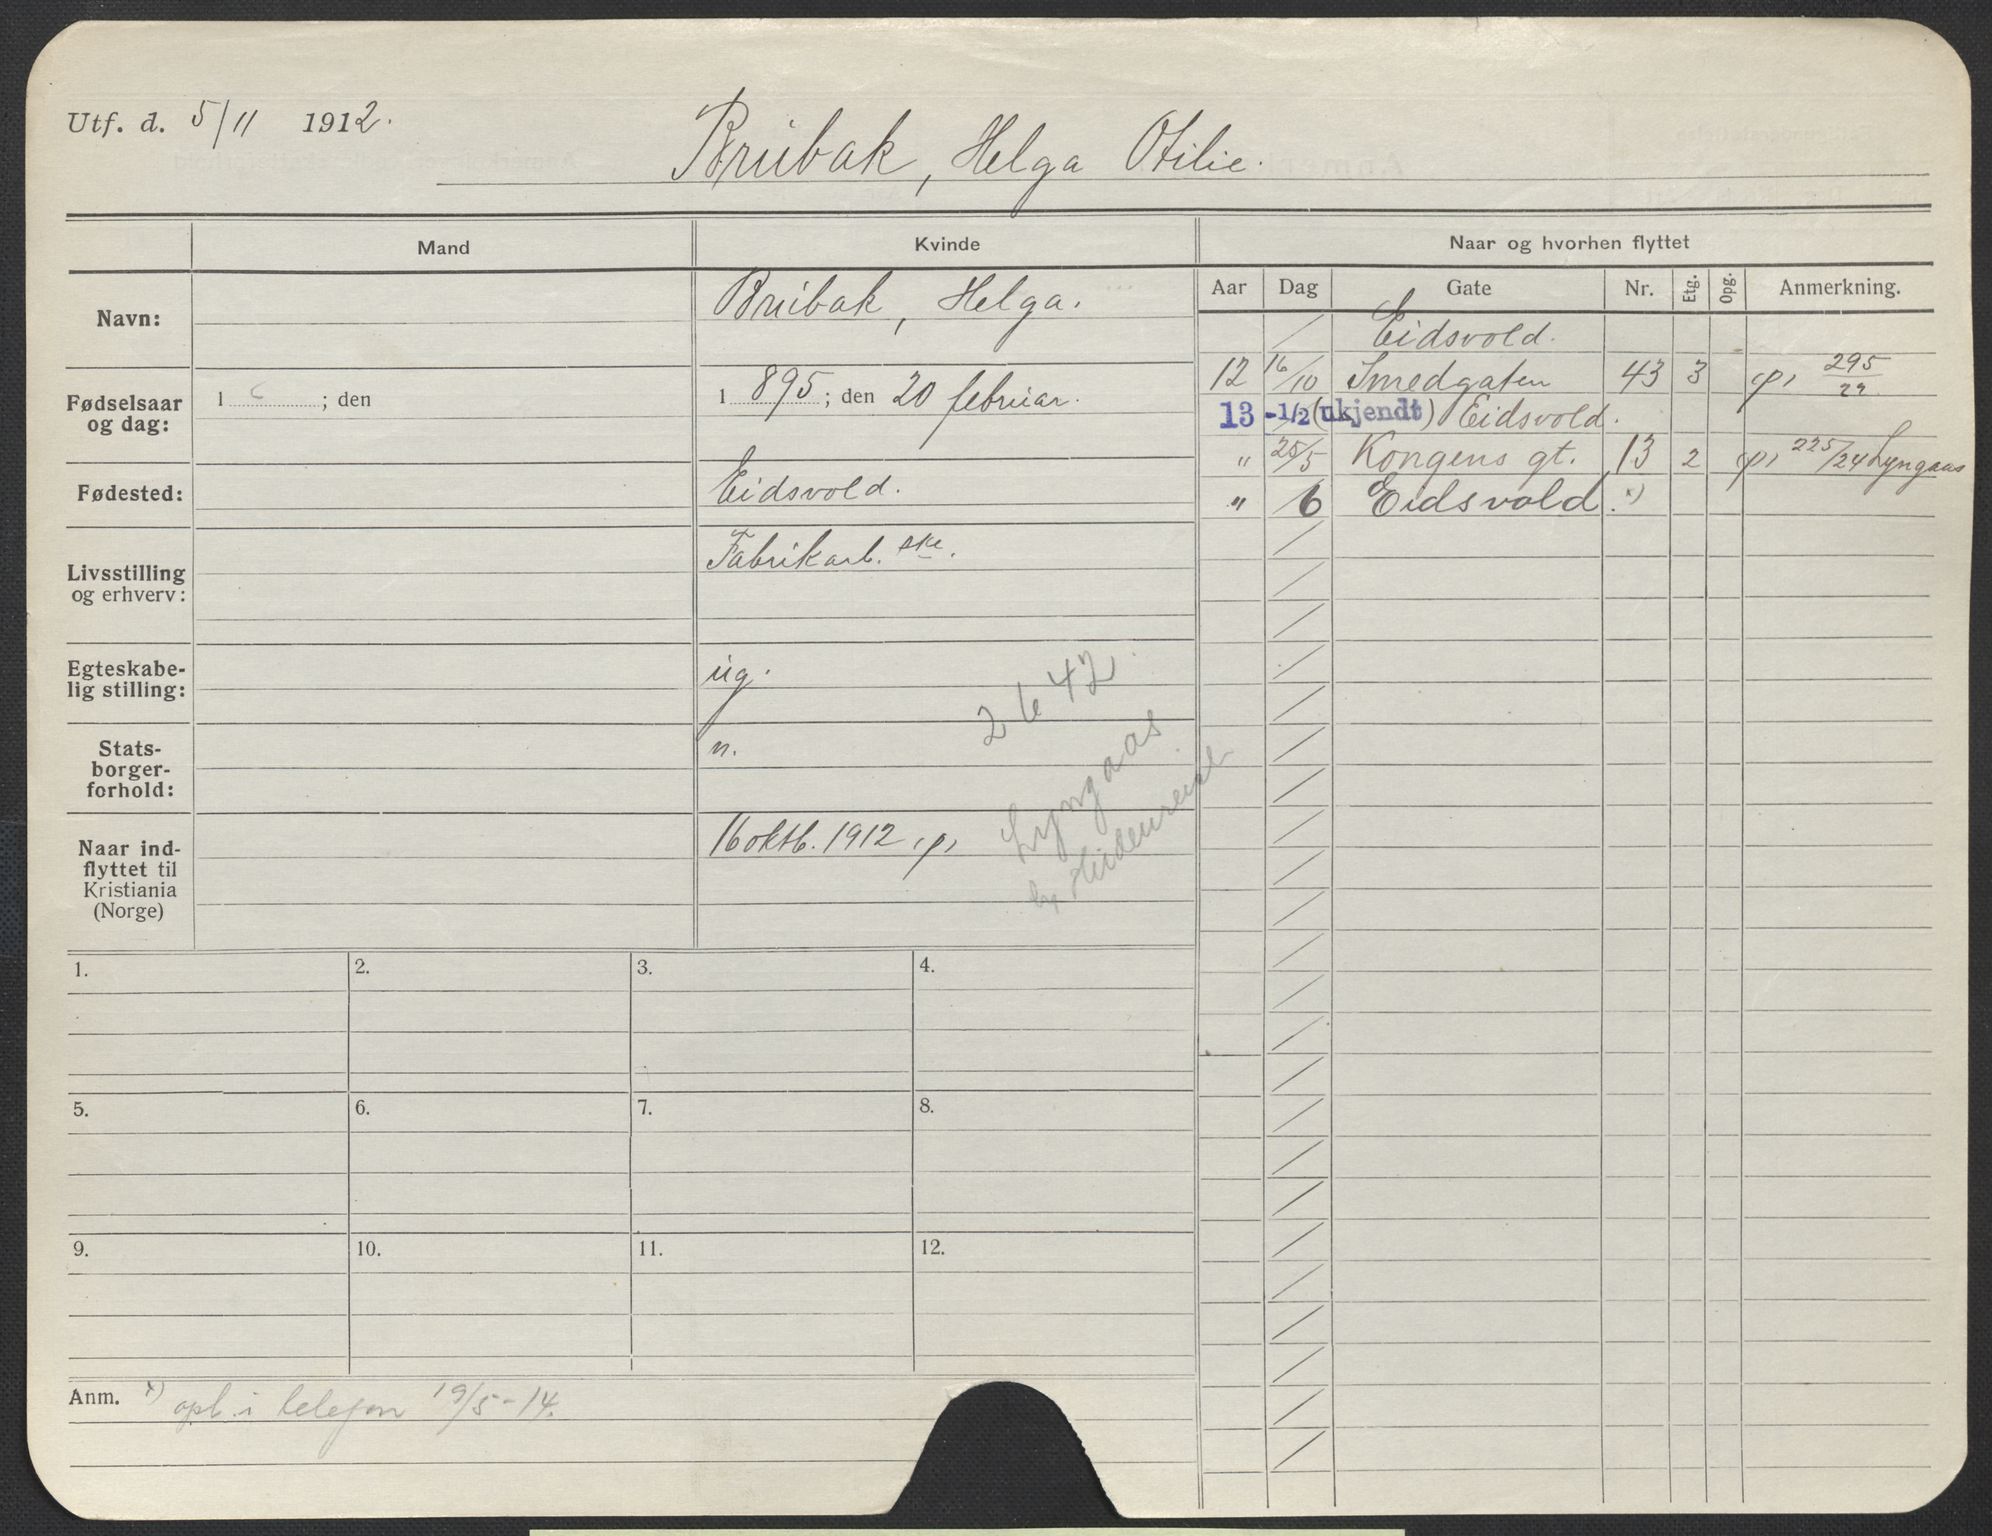 Utf. d. 5/11 1912.
Brübak, Helga Otilie.
Mand
Kvinde
Naar og hvorhen flyttet
Navn:
Brübak, Helga.
Fødselsaar og dag:
1 ; den
1 895 ; den 20 februar.
Fødested:
Eidsvold.
Livsstilling og erhverv:
Fabrikarb. ske.
Egteskabe-
lig stilling:
ug.
Stats-
borger-
forhold:
n.
Naar ind-
flyttet til
Kristiania
(Norge)
16 oktb. 1912 (p)
2 42
Lyngaas
Aar Dag Gate Nr. Etg. Opg. Anmerkning.
/ Eidsvold.
12 16/10 Smedgaten 43 3 (p) 295/22
13 -1/2 (ukjendt) Eidsvold.
" 25/5 Kongens gt. 13 2 (p) 225/24 Lyngaas
" / 6 Eidsvold. x)
1. 2. 3. 4.
5. 6. 7. 8.
9. 10. 11. 12.
Anm. x) opl. i telefon 19/5-14.